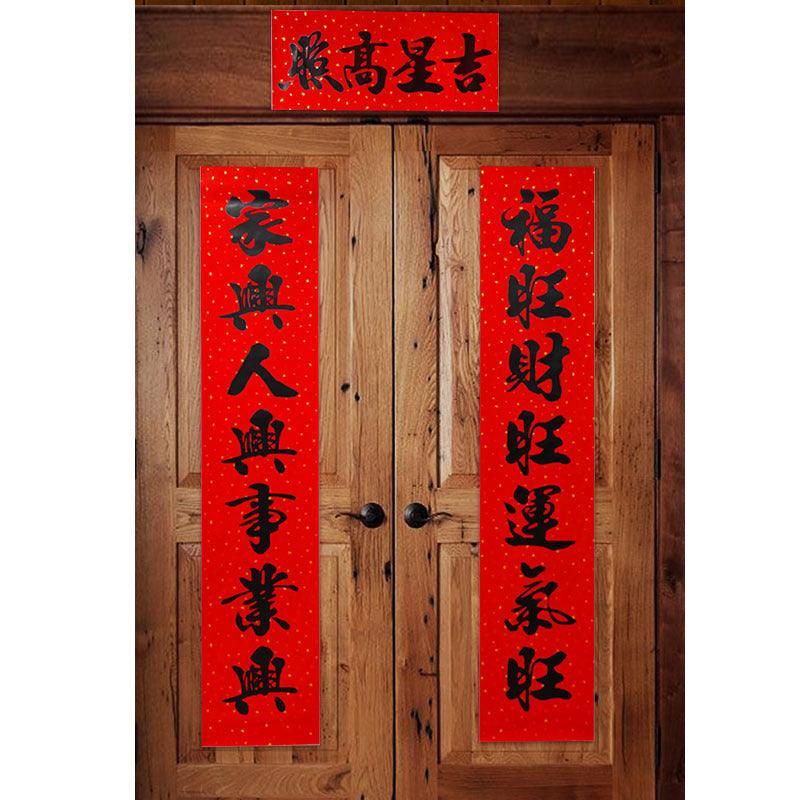 吉星高照
福旺財旺運氣旺
家興人興事業興